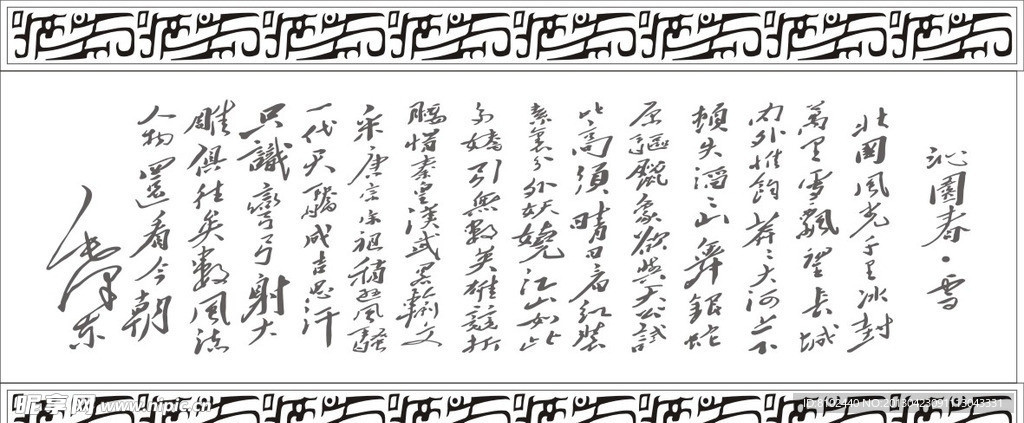 沁園春·雪
北國風光千里冰封
萬里雪飄望長城
内外惟餘莽〻大河上下
頓失滔〻山舞銀蛇
原驅蠟象欲與天公試
比高須晴日看紅裝
素裹分外妖嬈江山如此
多嬌引無數英雄競折
腰惜秦皇漢武略輸文
采唐宗宋祖稍遜風騷
一代天驕成吉思汗
只識彎弓射大
雕俱往矣數風流
人物還看今朝
毛澤東
昵享网 www.nipic.cn